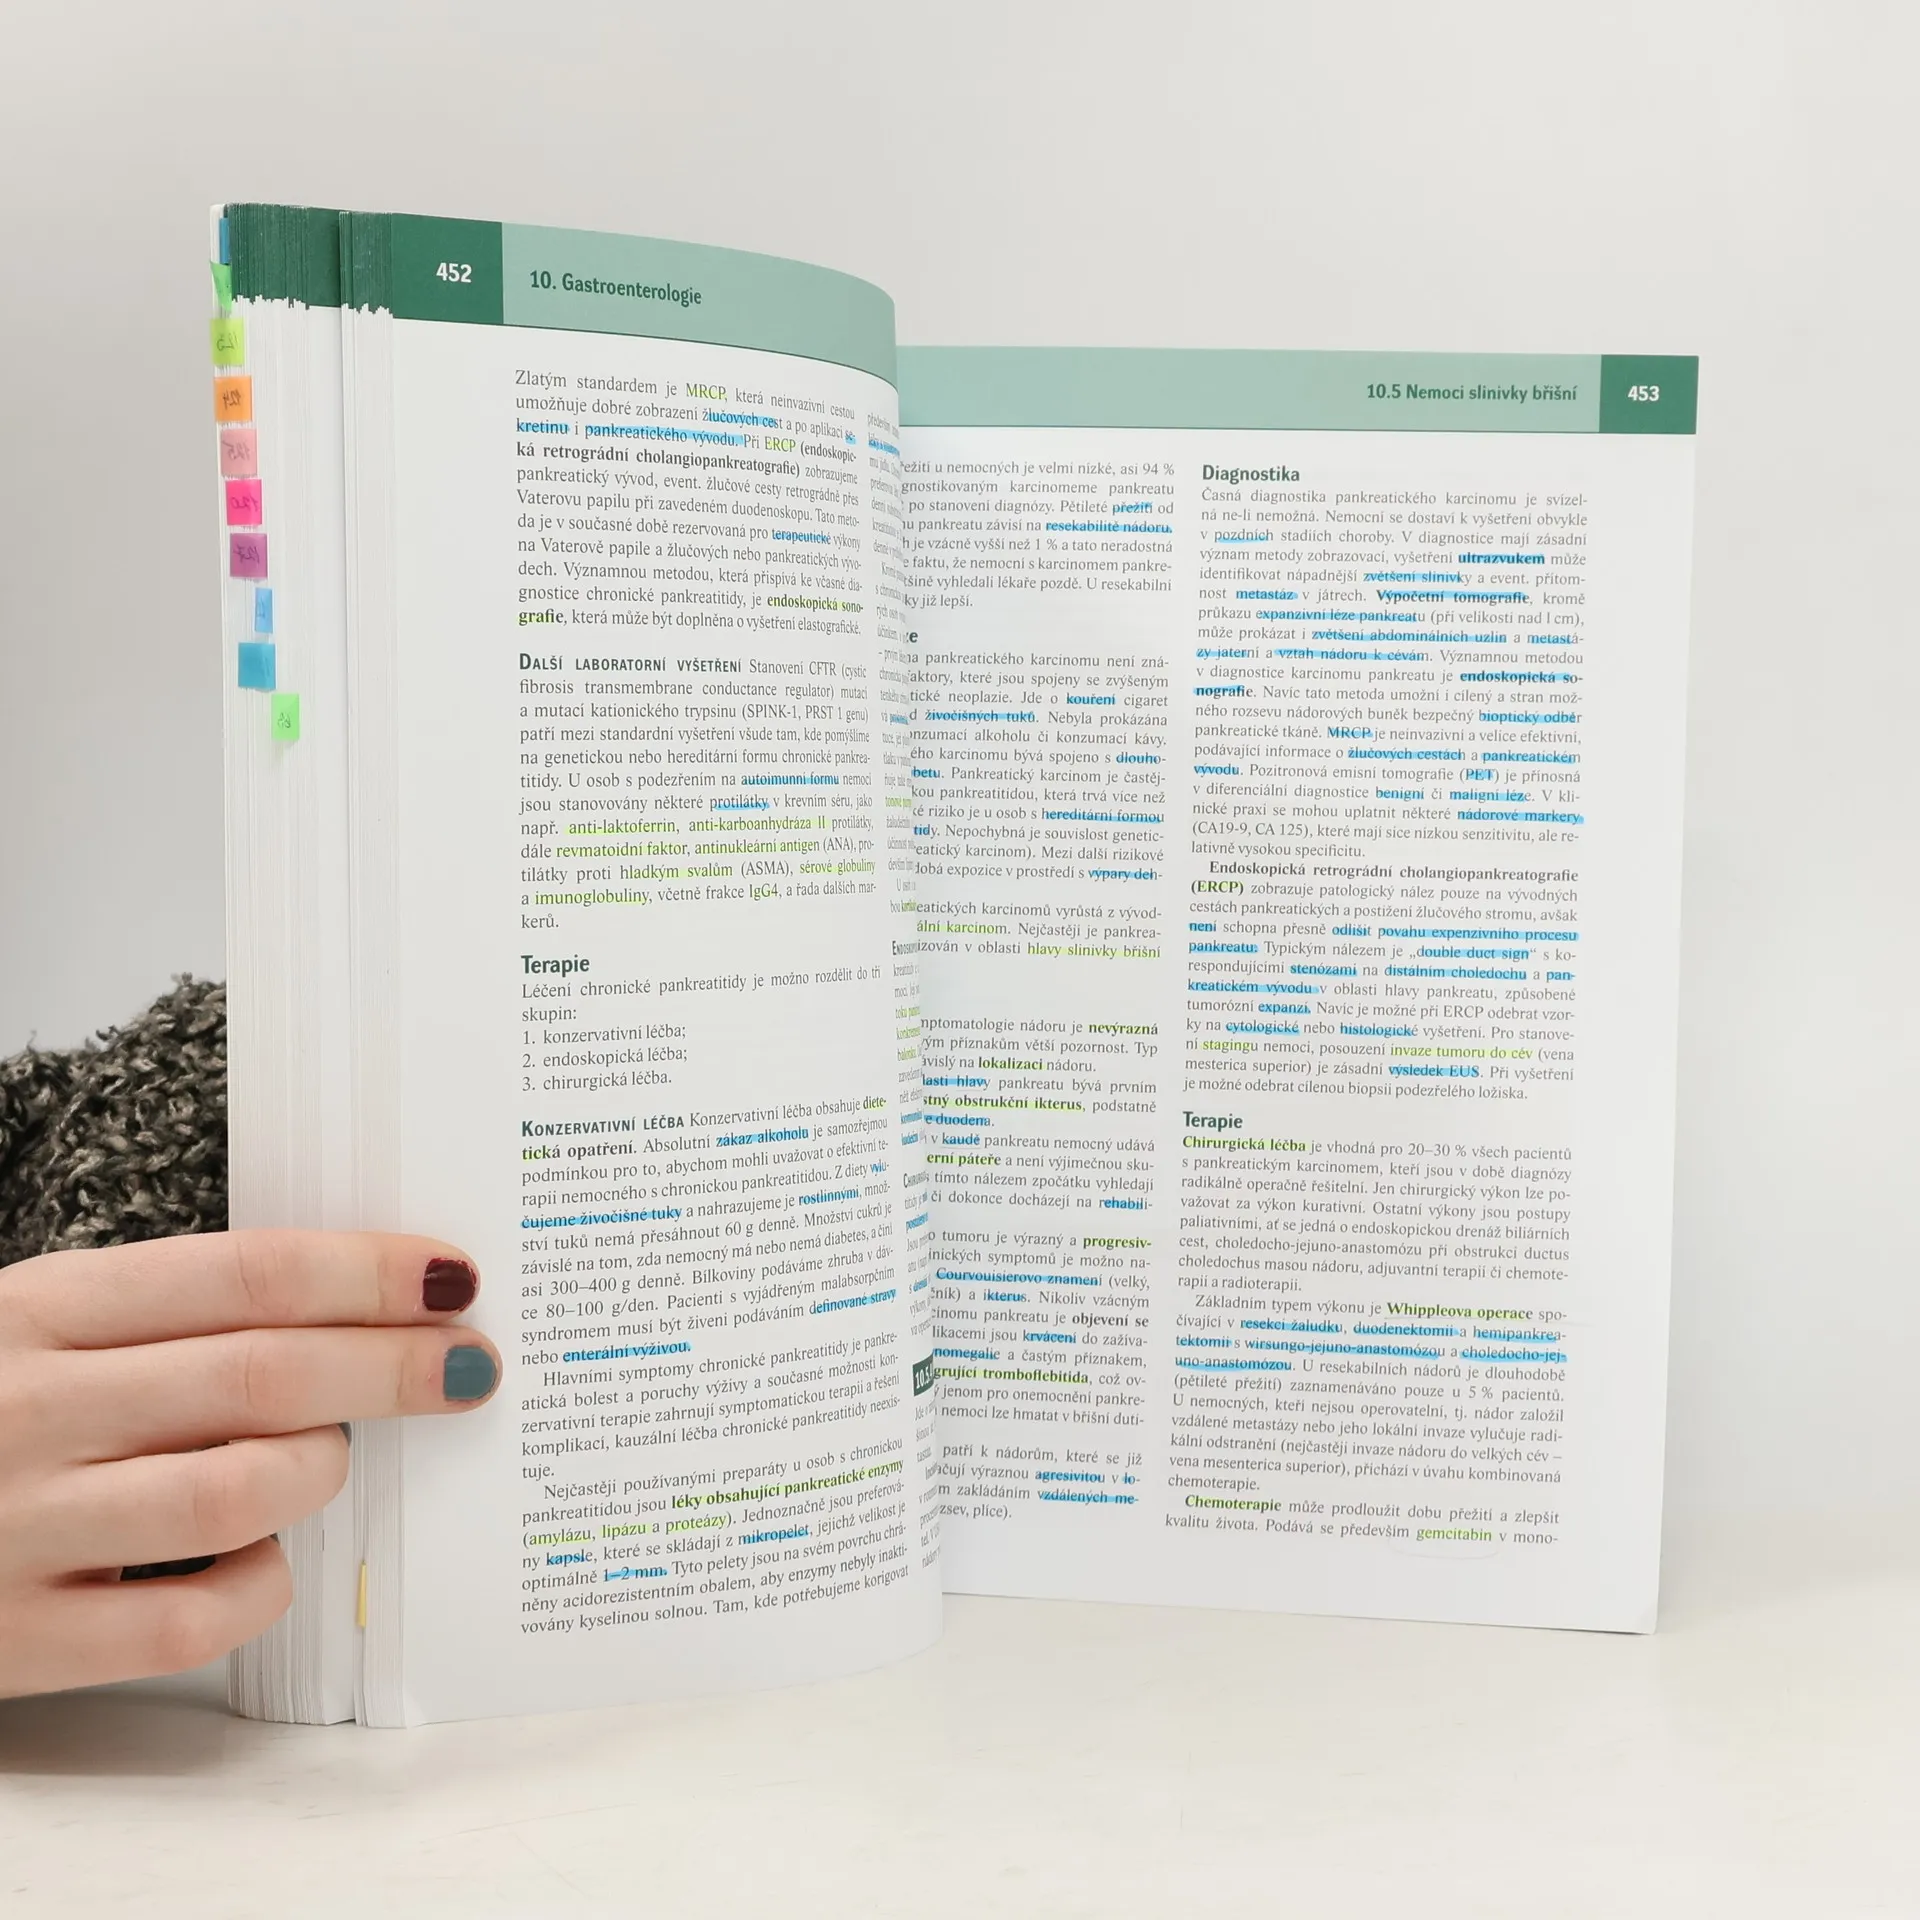 452
10. Gastroenterologie
Zlatým standardem je MRCP, která neinvazivní cestou
umožňuje dobré zobrazení žlučových cest a po aplikaci se-
kretinu i pankreatického vývodu. Při ERCP (endoskopic-
ká retrográdní cholangiopankreatografie) zobrazujeme
pankreatický vývod, event. žlučové cesty retrográdně přes
Vaterovu papilu při zavedeném duodenoskopu. Tato meto-
da je v současné době rezervovaná pro terapeutické výkony
na Vaterově papile a žlučových nebo pankreatických vývo-
dech. Významnou metodou, která přispívá ke včasné dia-
gnostice chronické pankreatitidy, je endoskopická sono-
grafie, která může být doplněna o vyšetření elastografické.
DALŠÍ LABORATORNÍ VYŠETŘENÍ Stanovení CFTR (cystic
fibrosis transmembrane conductance regulator) mutací
a mutací kationického trypsinu (SPINK-1, PRST 1 genu)
patří mezi standardní vyšetření všude tam, kde pomýšlíme
na genetickou nebo hereditární formu chronické pankrea-
titidy. U osob s podezřením na autoimunní formu nemoci
jsou stanovovány některé protilátky v krevním séru, jako
např. anti-laktoferrin, anti-karboanhydráza II protilátky,
dále revmatoidní faktor, antinukleární antigen (ANA), pro-
tilátky proti hladkým svalům (ASMA), sérové globuliny
a imunoglobuliny, včetně frakce IgG4, a řada dalších mar-
kerů.
Terapie
Léčení chronické pankreatitidy je možno rozdělit do tří
skupin:
1. konzervativní léčba;
2. endoskopická léčba;
3. chirurgická léčba.
KONZERVATIVNÍ LÉČBA Konzervativní léčba obsahuje diete-
tická opatření. Absolutní zákaz alkoholu je samozřejmou
podmínkou pro to, abychom mohli uvažovat o efektivní te-
rapii nemocného s chronickou pankreatitidou. Z diety vylu-
čujeme živočišné tuky a nahrazujeme je rostlinnými, množ-
ství tuků nemá přesáhnout 60 g denně. Množství cukrů je
závislé na tom, zda nemocný má nebo nemá diabetes, a činí
asi 300–400 g denně. Bílkoviny podáváme zhruba v dáv-
ce 80–100 g/den. Pacienti s vyjádřeným malabsorpčním
syndromem musí být živeni podáváním definované stravy
nebo enterální výživou.
Hlavními symptomy chronické pankreatitidy je pankre-
atická bolest a poruchy výživy a současné možnosti kon-
zervativní terapie zahrnují symptomatickou terapii a řešení
komplikací, kauzální léčba chronické pankreatitidy neexis-
tuje.
Nejčastěji používanými preparáty u osob s chronickou
pankreatitidou jsou léky obsahující pankreatické enzymy
(amylázu, lipázu a proteázy). Jednoznačně jsou preferová-
ny kapsle, které se skládají z mikropelet, jejichž velikost je
optimálně 1–2 mm. Tyto pelety jsou na svém povrchu chrá-
něny acidorezistentním obalem, aby enzymy nebyly inakti-
vovány kyselinou solnou. Tam, kde potřebujeme korigovat
10.5 Nemoci slinivky břišní
453
u nemocných je velmi nízké, asi 94 %
karcinomeme pankreatu
po stanovení diagnózy. Pětileté přežití od
pankreatu závisí na resekabilitě nádoru.
je vzácně vyšší než 1 % a tato neradostná
faktu, že nemocní s karcinomem pankre-
vyhledali lékaře pozdě. U resekabilní
již lepší.
pankreatického karcinomu není zná-
faktory, které jsou spojeny se zvýšeným
neoplazie. Jde o kouření cigaret
živočišných tuků. Nebyla prokázána
alkoholu či konzumací kávy.
karcinomu bývá spojeno s dlouho-
Pankreatický karcinom je častěj-
pankreatitidou, která trvá více než
riziko je u osob s hereditární formou
Nepochybná je souvislost genetic-
karcinom). Mezi další rizikové
expozice v prostředí s výpary deh-
karcinomů vyrůstá z vývod-
karcinom. Nejčastěji je pankrea-
v oblasti hlavy slinivky břišní
nádoru je nevýrazná
příznakům větší pozornost. Typ
na lokalizaci nádoru.
hlavy pankreatu bývá prvním
obstrukční ikterus, podstatně
duodena.
v kaudě pankreatu nemocný udává
páteře a není výjimečnou sku-
tímto nálezem zpočátku vyhledají
či dokonce docházejí na rehabili-
tumoru je výrazný a progresiv-
symptomů je možno na-
Courvouisierovo znamení (velký,
a ikterus. Nikoliv vzácným
pankreatu je objevení se
jsou krvácení do zažíva-
a častým příznakem,
tromboflebitida, což ov-
jenom pro onemocnění pankre-
nemoci lze hmatat v břišní duti-
patří k nádorům, které se již
výraznou agresivitou v lo-
zakládáním vzdálených me-
plíce).
Diagnostika
Časná diagnostika pankreatického karcinomu je svízel-
ná ne-li nemožná. Nemocní se dostaví k vyšetření obvykle
v pozdních stadiích choroby. V diagnostice mají zásadní
význam metody zobrazovací, vyšetření ultrazvukem může
identifikovat nápadnější zvětšení slinivky a event. přítom-
nost metastáz v játrech. Výpočetní tomografie, kromě
průkazu expanzivní léze pankreatu (při velikosti nad 1 cm),
může prokázat i zvětšení abdominálních uzlin a metastá-
zy jaterní a vztah nádoru k cévám. Významnou metodou
v diagnostice karcinomu pankreatu je endoskopická so-
nografie. Navíc tato metoda umožní i cílený a stran mož-
ného rozsevu nádorových buněk bezpečný bioptický odběr
pankreatické tkáně. MRCP je neinvazivní a velice efektivní,
podávající informace o žlučových cestách a pankreatickém
vývodu. Pozitronová emisní tomografie (PET) je přínosná
v diferenciální diagnostice benigní či maligní léze. V kli-
nické praxi se mohou uplatnit některé nádorové markery
(CA19-9, CA 125), které mají sice nízkou senzitivitu, ale re-
lativně vysokou specificitu.
Endoskopická retrográdní cholangiopankreatografie
(ERCP) zobrazuje patologický nález pouze na vývodných
cestách pankreatických a postižení žlučového stromu, avšak
není schopna přesně odlišit povahu expenzivního procesu
pankreatu. Typickým nálezem je „double duct sign“ s ko-
respondujícími stenózami na distálním choledochu a pan-
kreatickém vývodu v oblasti hlavy pankreatu, způsobené
tumorózní expanzí. Navíc je možné při ERCP odebrat vzor-
ky na cytologické nebo histologické vyšetření. Pro stanove-
ní stagingu nemoci, posouzení invaze tumoru do cév (vena
mesterica superior) je zásadní výsledek EUS. Při vyšetření
je možné odebrat cílenou biopsii podezřelého ložiska.
Terapie
Chirurgická léčba je vhodná pro 20–30 % všech pacientů
s pankreatickým karcinomem, kteří jsou v době diagnózy
radikálně operačně řešitelní. Jen chirurgický výkon lze po-
važovat za výkon kurativní. Ostatní výkony jsou postupy
paliativními, ať se jedná o endoskopickou drenáž biliárních
cest, choledocho-jejuno-anastomózu při obstrukci ductus
choledochus masou nádoru, adjuvantní terapii či chemote-
rapii a radioterapii.
Základním typem výkonu je Whippleova operace spo-
čívající v resekci žaludku, duodenektomii a hemipankrea-
tektomii s wirsungo-jejuno-anastomózou a choledocho-jej-
uno-anastomózou. U resekabilních nádorů je dlouhodobě
(pětileté přežití) zaznamenáváno pouze u 5 % pacientů.
U nemocných, kteří nejsou operovatelní, tj. nádor založil
vzdálené metastázy nebo jeho lokální invaze vylučuje radi-
kální odstranění (nejčastěji invaze nádoru do velkých cév –
vena mesenterica superior), přichází v úvahu kombinovaná
chemoterapie.
Chemoterapie může prodloužit dobu přežití a zlepšit
kvalitu života. Podává se především gemcitabin v mono-